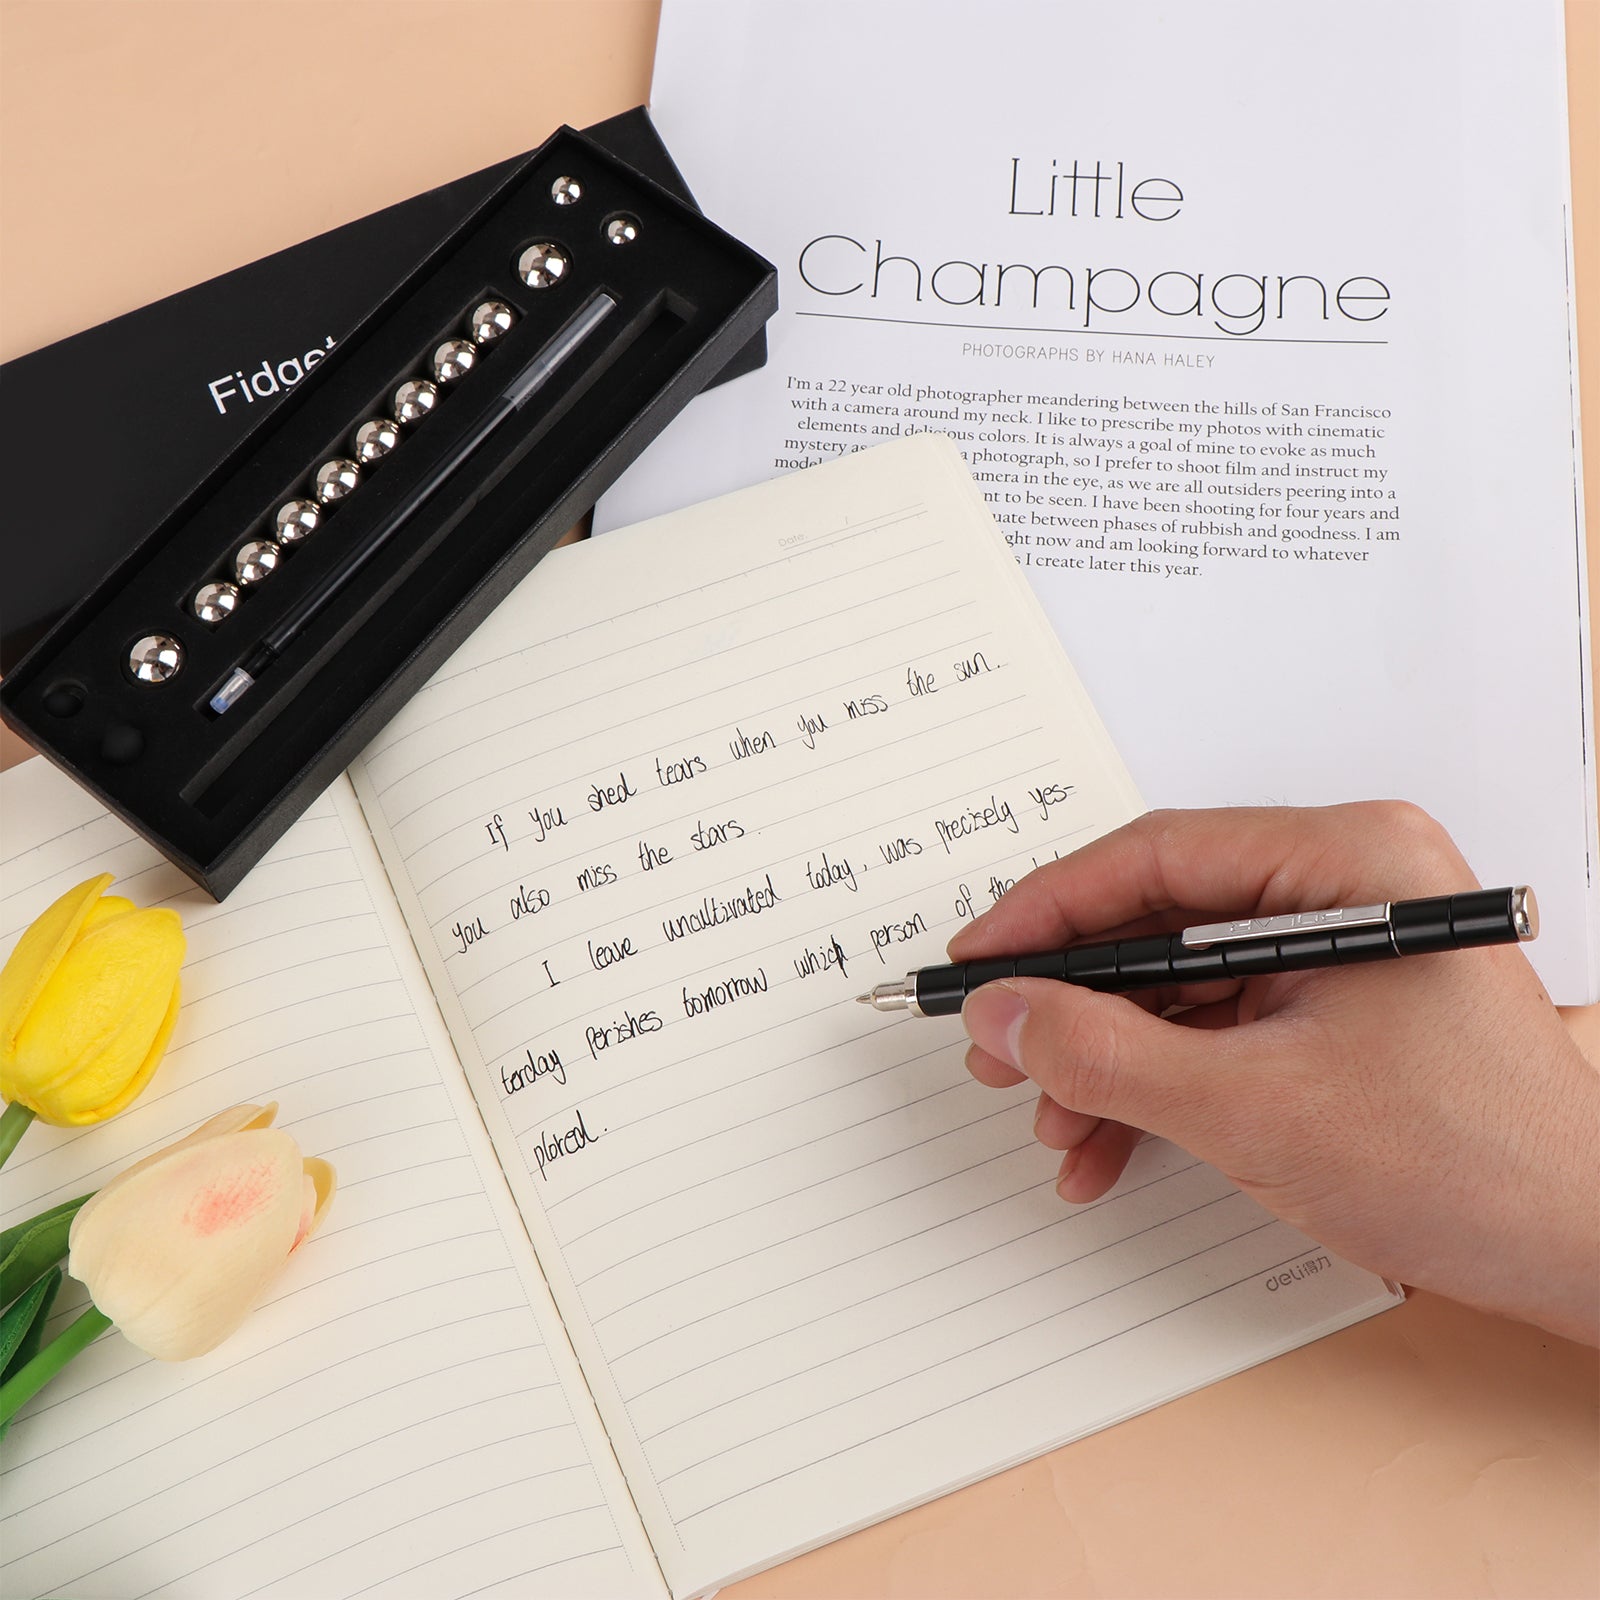 Little
Champagne
PHOTOGRAPHS BY HANA HALEY
I'm a 22 year old photographer meandering between the hills of San Francisco
with a camera around my neck. I like to prescribe my photos with cinematic
elements and delicious colors. It is always a goal of mine to evoke as much
mystery as a photograph, so I prefer to shoot film and instruct my
model amera in the eye, as we are all outsiders peering into a
nt to be seen. I have been shooting for four years and
uate between phases of rubbish and goodness. I am
ight now and am looking forward to whatever
s I create later this year.
Fidget
Date / 
If you shed tears when you miss the sun.
you also miss the stars.
I leave uncultivated today, was precisely yes-
terday perishes tomorrow which person of the
plored.
POLAR
deli得力